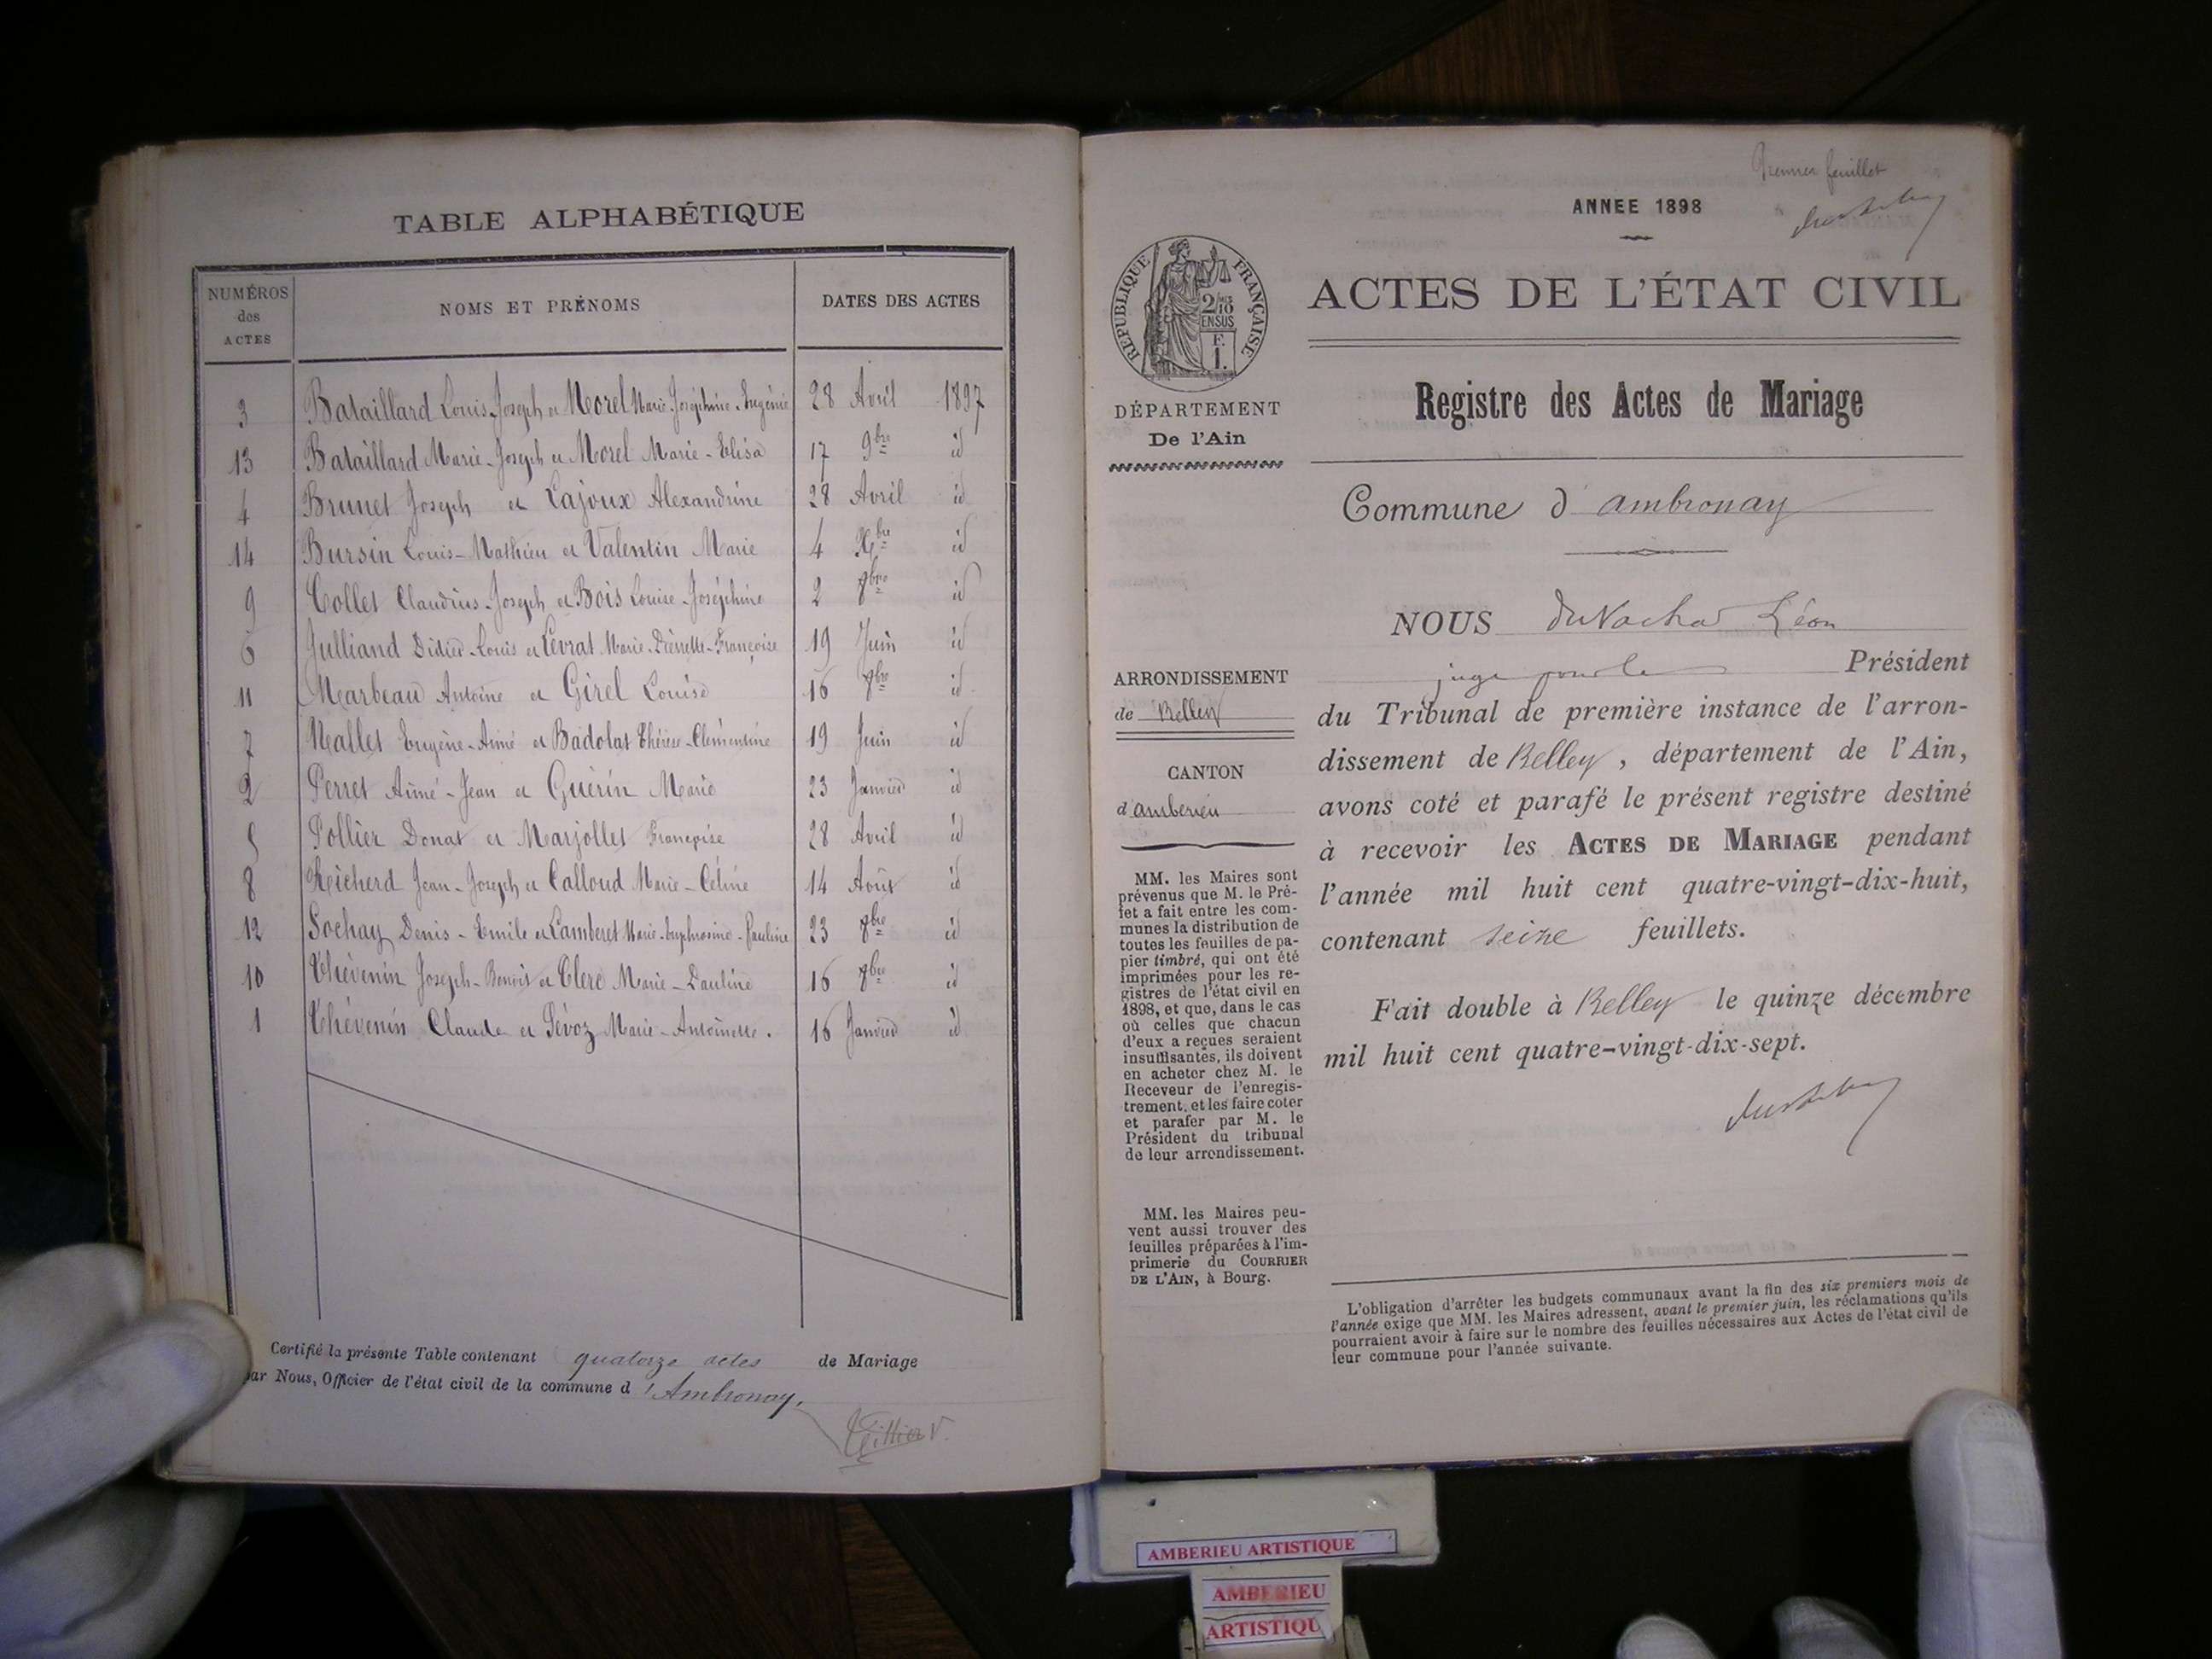 TABLE ALPHABÉTIQUE
NUMÉROS des ACTES
NOMS ET PRÉNOMS
DATES DES ACTES
3 Bataillard Louis-Joseph et Morel Marie-Joséphine-Eugénie 28 Avril 1897
13 Bataillard Marie-Joseph et Morel Marie-Elisa 17 9bre id
4 Brunet Joseph et Lajoux Alexandrine 28 Avril id
14 Bursin Louis-Mathieu et Valentin Marie 4 Xbre id
9 Collet Claudius-Joseph et Bois Louise-Joséphine 2 8bre id
6 Julliand Didier-Louis et Levrat Marie-Pierrette-Françoise 19 Juin id
11 Marbeau Antoine et Girel Louise 16 8bre id
7 Mallet Eugène-Aimé et Badolat Thérèse-Clémentine 19 Juin id
2 Perret Aimé-Jean et Guérin Marie 23 Janvier id
5 Pollier Donat et Marjollet Françoise 28 Avril id
8 Richerd Jean-Joseph et Calloud Marie-Céline 14 Août id
12 Sochay Denis-Emile et Lamberet Marie-Euphrosine-Pauline 23 8bre id
10 Thévenin Joseph-Benoit et Clerc Marie-Pauline 16 8bre id
1 Thévenin Claude et Pévoz Marie-Antoinette. 16 Janvier id
Certifié la présente Table contenant quatorze actes de Mariage
par Nous, Officier de l'état civil de la commune d'Ambronay.
Premier feuillet
ANNEE 1898
RÉPUBLIQUE FRANÇAISE
ACTES DE L'ÉTAT CIVIL
Registre des Actes de Mariage
DÉPARTEMENT
De l'Ain
Commune d'ambronay
NOUS Léon
juge pour le Président
ARRONDISSEMENT
de Belley
du Tribunal de première instance de l'arron-
dissement de Belley, département de l'Ain,
CANTON
d'ambérieu
avons coté et parafé le présent registre destiné
à recevoir les ACTES DE MARIAGE pendant
l'année mil huit cent quatre-vingt-dix-huit,
contenant seize feuillets.
Fait double à Belley le quinze décembre
mil huit cent quatre-vingt-dix-sept.
MM. les Maires sont
prévenus que M. le Pré-
fet a fait entre les com-
munes la distribution de
toutes les feuilles de pa-
pier timbré, qui ont été
imprimées pour les re-
gistres de l'état civil en
1898, et que, dans le cas
où celles que chacun
d'eux a reçues seraient
insuffisantes, ils doivent
en acheter chez M. le
Receveur de l'enregis-
trement, et les faire coter
et parafer par M. le
Président du tribunal
de leur arrondissement.
MM. les Maires peu-
vent aussi trouver des
feuilles préparées à l'im-
primerie du COURRIER
DE L'AIN, à Bourg.
L'obligation d'arrêter les budgets communaux avant la fin des six premiers mois de
l'année exige que MM. les Maires adressent, avant le premier juin, les réclamations qu'ils
pourraient avoir à faire sur le nombre des feuilles nécessaires aux Actes de l'état civil de
leur commune pour l'année suivante.
AMBERIEU ARTISTIQUE
AMBERIEU
ARTISTIQU